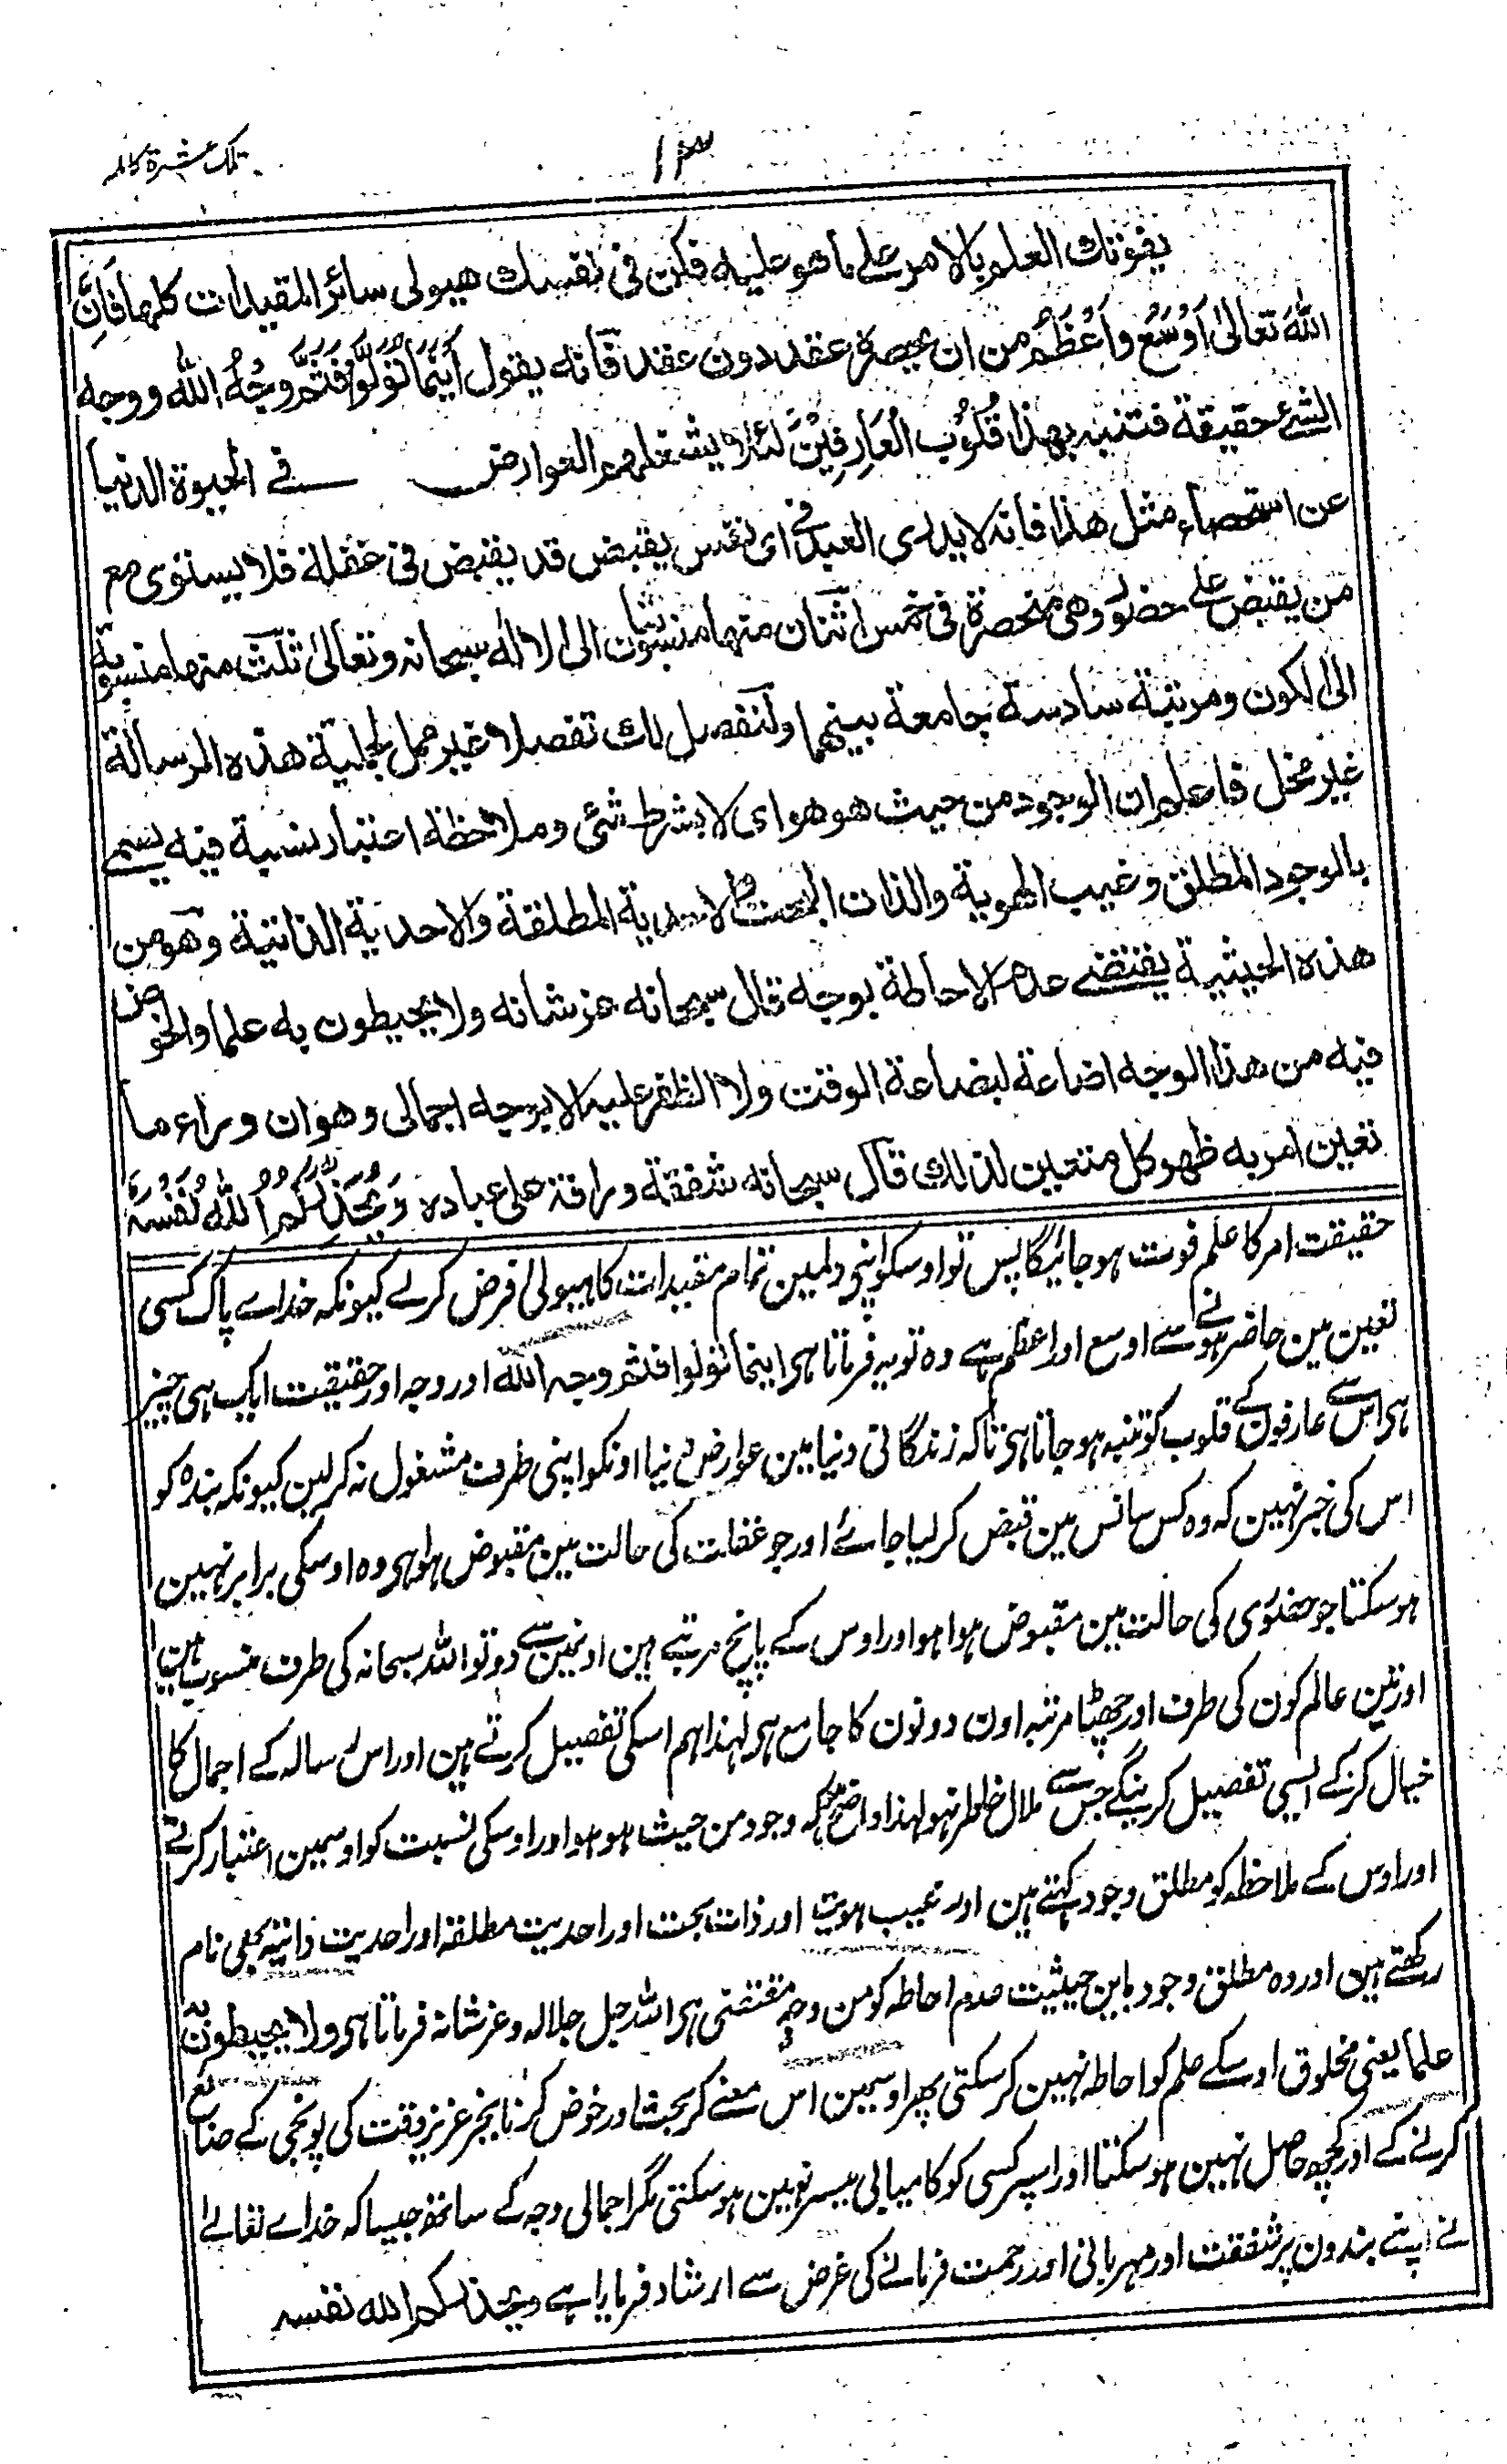 تلک عشرة کاملہ
١٣
يفوتك العلم بالامر على ما هو عليه فكن فى نفسك هيولى سائر المقيدات كلها فَاِنَّ
اللهَ تعالىٰ اَوْسَعُ واَعْظَمُ من ان يحصره عقد دون عقد فانه يقول اَيْنَمَا تُوَلُّوْا فَثَمَّ وَجْهُ الله ووجه
الشئ حقيقة فتنبه بهذا قُلُوْب الْعَارِفِيْنَ لئلا يشغلهم العوارض فے الحيوة الدنيا
عن استحصاء مثل هذا فانه لا يدرى العبد فى اى نفس يقبض قد يقبض فى غفلة فلا يستوى مع
من يقبض على حضور وهى منحصرة فى خمس اثنان منها منسوبتان الى الاله سبحانه وتعالىٰ ثلث منها منسوبة
الى الكون ومرتبة سادسة جامعة بينهما ولنفصل لك تفصيلا غير ممل لجملية هذه الرسالة
غير مخل فاعلم ان الوجود من حيث هو هو اى لا بشرط شئى وملاحظة اعتبار نسبة فيه يسمے
بالوجود المطلق وغيب الهوية والذات البحت والاحدية المطلقة والاحدية الذاتية وهو من
هذه الحيثية يقتضے عدم الاحاطة بوجه قال سبحانه عز شانه ولا يحيطون به علما والخوض
فيه من هذا الوجه اضاعة لبضاعة الوقت ولا الظفر عليه الا بوجه اجمالى وهو ان وراء ما
تعين امر به ظهر كل متعين لذلك قال سبحانه شفقة ورافة على عباده وَيُحَذِّرُكُمُ اللهُ نَفْسَهُ
حقیقت امر کا علم فوت ہو جائیگا پس تو اوسکو اپنی دلمین تمام مقیدات کا ہیولیٰ فرض کر لے کیونکہ خداے پاک کسی
تعین مین حاضر ہونے سے اوسع اور اعظم ہے وہ تو یہ فرماتا ہی اینما تولوا فثم وجہ اللہ اور وجہ اور حقیقت ایک ہی چیز
ہی اس سے عارفون کے قلوب کو تنبہ ہو جاتا ہی تاکہ زندگانی دنیا مین عوارض دنیا اونکو اپنی طرف مشغول نہ کر لین کیونکہ بندہ کو
اس کی خبر نہین کہ وہ کس سانس مین قبض کر لیا جاے اور جو غفلت کی حالت مین مقبوض ہوا ہی وہ اوسکی برابر نہین
ہو سکتا جو حضوری کی حالت مین مقبوض ہوا ہو اور اوس کے پانچ مرتبے ہین اونمین سے دو تو اللہ سبحانہ کی طرف منسوب ہین
اور تین عالم کون کی طرف اور چھٹا مرتبہ اون دونون کا جامع ہی لہذا ہم اسکی تفصیل کرتے ہین اور اس رسالہ کے اجمال کا
خیال کر کے ایسی تفصیل کرینگے جس سے ملال خاطر نہو لہذا واضح ہو کہ وجود من حیث ہو ہو اور اوسکی نسبت کو اوسمین اعتبار کرنے
اور اوس کے ملاحظہ کو مطلق وجود کہتے ہین اور غیب ہویت اور ذات بحت اور احدیت مطلقہ اور احدیت ذاتیہ بھی نام
رکھتے ہین اور وہ مطلق وجود باین حیثیت عدم احاطہ کو من وجہ مقتضی ہی اللہ جل جلالہ وعز شانہ فرماتا ہی ولا یحیطون بہ
علما یعنی مخلوق اوسکے علم کو احاطہ نہین کر سکتی پھر اوسمین اس معنے کر بحث اور خوض کرنا بجز عزیز وقت کی پونجی کے ضائع
کرنے کے اور کچھ حاصل نہین ہو سکتا اور اسپر کسی کو کامیابی میسر نہین ہو سکتی مگر اجمالی وجہ کے ساتھ جیسا کہ خداے تعالےٰ
نے اپنے بندون پر شفقت اور مہربانی اور رحمت فرمانے کی غرض سے ارشاد فرمایا ہے ویحذرکم اللہ نفسہ